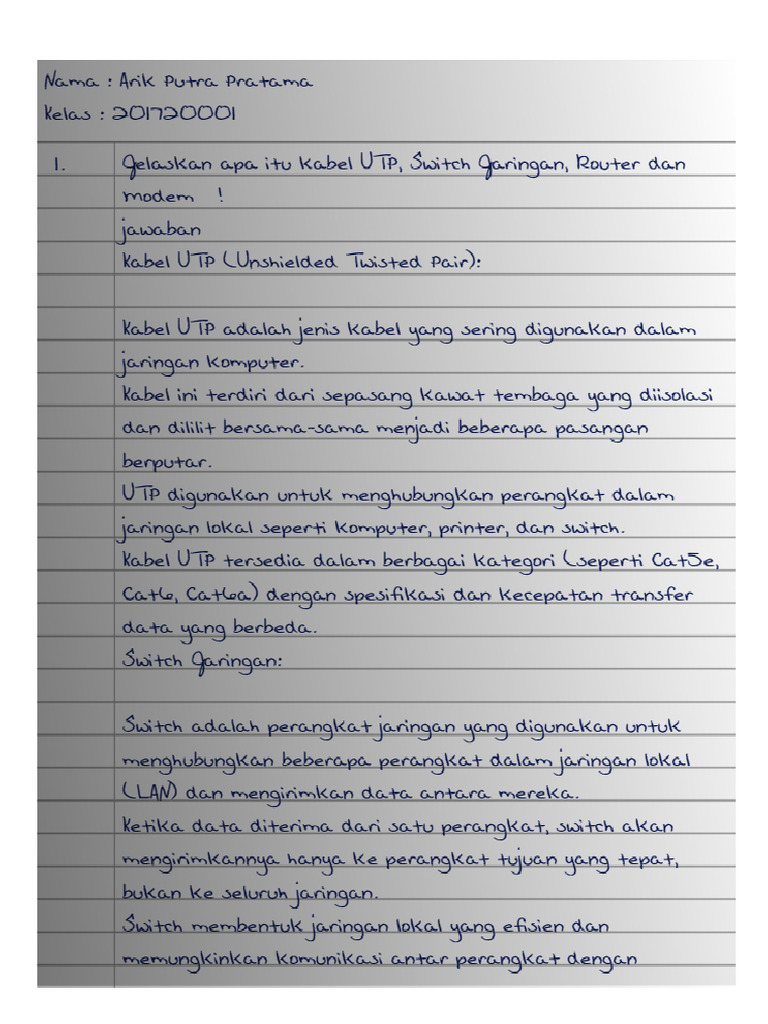 Nama : Arik Putra Pratama
Kelas : 201720001
1. Jelaskan apa itu Kabel UTP, Switch Jaringan, Router dan
modem !
jawaban
Kabel UTP (Unshielded Twisted Pair):
Kabel UTP adalah jenis kabel yang sering digunakan dalam
jaringan komputer.
Kabel ini terdiri dari sepasang kawat tembaga yang diisolasi
dan dililit bersama-sama menjadi beberapa pasangan
berputar.
UTP digunakan untuk menghubungkan perangkat dalam
jaringan lokal seperti komputer, printer, dan switch.
Kabel UTP tersedia dalam berbagai kategori (seperti Cat5e,
Cat6, Cat6a) dengan spesifikasi dan kecepatan transfer
data yang berbeda.
Switch Jaringan:
Switch adalah perangkat jaringan yang digunakan untuk
menghubungkan beberapa perangkat dalam jaringan lokal
(LAN) dan mengirimkan data antara mereka.
Ketika data diterima dari satu perangkat, switch akan
mengirimkannya hanya ke perangkat tujuan yang tepat,
bukan ke seluruh jaringan.
Switch membentuk jaringan lokal yang efisien dan
memungkinkan komunikasi antar perangkat dengan